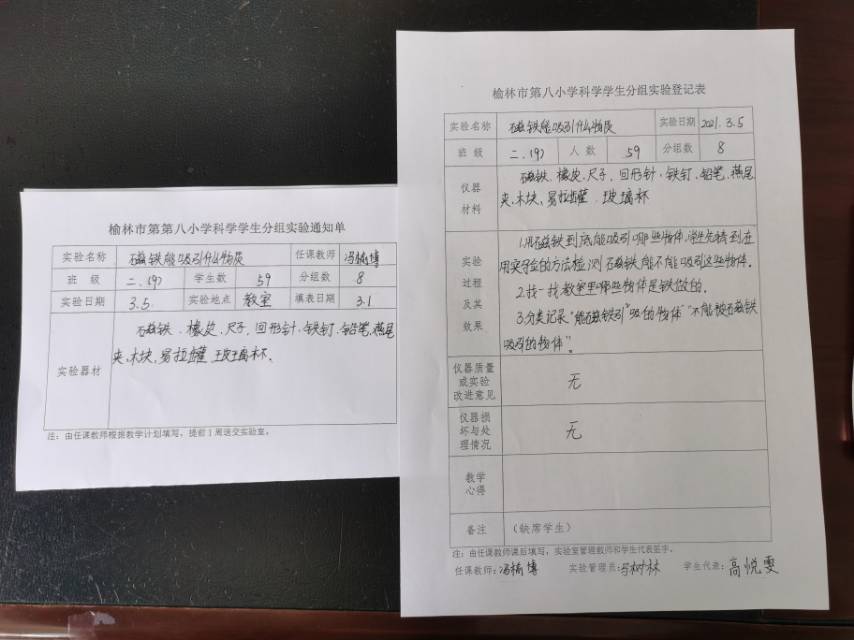 榆林市第第八小学科学学生分组实验通知单
实验名称 磁铁能吸引什么物质 任课教师
班 级 二.(9) 学生数 59 分组数 8
实验日期 3.5 实验地点 教室 填表日期 3.1
实验器材
磁铁、橡皮、尺子、回形针、铁钉、铅笔、燕尾
夹、木块、易拉罐、玻璃杯、
注：由任课教师根据教学计划填写，提前1周送交实验室。
榆林市第八小学科学学生分组实验登记表
实验名称 磁铁能吸引什么物质 实验日期 2021.3.5
班 级 二.(9) 人 数 59 分组数 8
仪器
材料
磁铁、橡皮、尺子、回形针、铁钉、铅笔、燕尾
夹、木块、易拉罐、玻璃杯
实验
过程
及其
效果
1.用磁铁到底能吸引哪些物体,
用实验的方法检测磁铁能不能吸引这些物体.
2.找一找教室里哪些物体是铁做的.
3.分类记录“能磁铁引”吸的物体”“不能被磁铁
吸引的物体”.
仪器质量
或实验
改进意见
无
仪器损
坏与处
理情况
无
教学
心得
备注 （缺席学生）
注：由任课教师课后填写，实验室管理教师和学生代表签字。
任课教师： 实验管理员： 学生代表：高悦雯